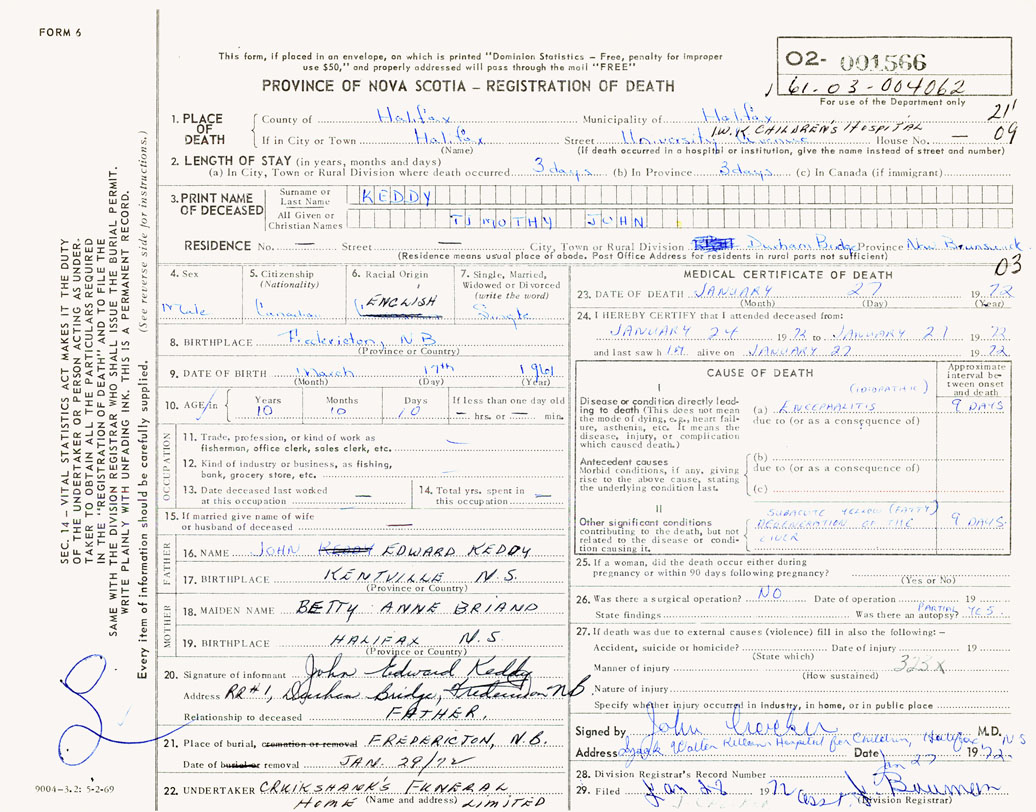 FORM 6
This form, if placed in an envelope, on which is printed "Dominion Statistics – Free, penalty for improper
use $50," and properly addressed will pass through the mail "FREE"
PROVINCE OF NOVA SCOTIA – REGISTRATION OF DEATH
02- 001566
61-03-004062
For use of the Department only
21
09
1. PLACE OF DEATH
County of Halifax Municipality of Halifax
I.W.K CHILDREN'S HOSPITAL
If in City or Town Halifax Street University Avenue House No. —
(Name) (If death occurred in a hospital or institution, give the name instead of street and number)
2. LENGTH OF STAY (in years, months and days)
(a) In City, Town or Rural Division where death occurred 3 days (b) In Province 3 days (c) In Canada (if immigrant)
3. PRINT NAME OF DECEASED
Surname or Last Name KEDDY
All Given or Christian Names TIMOTHY JOHN
RESIDENCE No. — Street — City, Town or Rural Division Durham Bridge Province New Brunswick
(Residence means usual place of abode. Post Office Address for residents in rural parts not sufficient)
03
4. Sex
Male
5. Citizenship (Nationality)
Canadian
6. Racial Origin
ENGLISH
7. Single, Married, Widowed or Divorced (write the word)
Single
8. BIRTHPLACE Fredericton, N B
(Province or Country)
9. DATE OF BIRTH March 17th 1961
(Month) (Day) (Year)
10. AGE in Years Months Days If less than one day old
10 10 10 — hrs. or — min.
OCCUPATION
11. Trade, profession, or kind of work as fisherman, office clerk, sales clerk, etc. —
12. Kind of industry or business, as fishing, bank, grocery store, etc. —
13. Date deceased last worked at this occupation —
14. Total yrs. spent in this occupation —
15. If married give name of wife or husband of deceased —
FATHER
16. NAME JOHN EDWARD KEDDY
17. BIRTHPLACE KENTVILLE N.S.
(Province or Country)
MOTHER
18. MAIDEN NAME BETTY ANNE BRIAND
19. BIRTHPLACE HALIFAX N.S
(Province or Country)
20. Signature of informant John Edward Keddy
Address RR#1, Durham Bridge, Fredericton NB
Relationship to deceased FATHER.
21. Place of burial, cremation or removal FREDERICTON, N.B.
Date of burial or removal JAN. 29/72
22. UNDERTAKER CRUIKSHANK'S FUNERAL
HOME (Name and address) LIMITED
MEDICAL CERTIFICATE OF DEATH
23. DATE OF DEATH JANUARY 27 1972
(Month) (Day) (Year)
24. I HEREBY CERTIFY that I attended deceased from:
JANUARY 24 1972 to JANUARY 27 1972
and last saw him alive on JANUARY 27 1972
CAUSE OF DEATH
Approximate interval between onset and death
I
Disease or condition directly leading to death (This does not mean the mode of dying, e.g., heart failure, asthenia, etc. It means the disease, injury, or complication which caused death.)
(IDIOPATHIC)
(a) ENCEPHALITIS 9 DAYS
due to (or as a consequence of)
Antecedent causes
Morbid conditions, if any, giving rise to the above cause, stating the underlying condition last.
(b)
due to (or as a consequence of)
(c)
II
Other significant conditions contributing to the death, but not related to the disease or condition causing it.
SUBACUTE YELLOW (FATTY)
DEGENERATION OF THE 9 DAYS
LIVER
25. If a woman, did the death occur either during pregnancy or within 90 days following pregnancy?
(Yes or No)
26. Was there a surgical operation? NO Date of operation 19
State findings Was there an autopsy? PARTIAL YES.
27. If death was due to external causes (violence) fill in also the following: –
Accident, suicide or homicide? Date of injury 19
(State which)
323X
Manner of injury
(How sustained)
Nature of injury
Specify whether injury occurred in industry, in home, or in public place
Signed by John Crocker M.D.
Address Izaak Walton Killam Hospital for Children, Halifax, NS
Date Jan 27 1972.
28. Division Registrar's Record Number
29. Filed Jan 28 1972 asst J. Bauman
(Division Registrar)
SEC. 14 – VITAL STATISTICS ACT MAKES IT THE DUTY
OF THE UNDERTAKER OR PERSON ACTING AS UNDER-
TAKER TO OBTAIN ALL THE PARTICULARS REQUIRED
IN THE "REGISTRATION OF DEATH" AND TO FILE THE
SAME WITH THE DIVISION REGISTRAR WHO SHALL ISSUE THE BURIAL PERMIT.
WRITE PLAINLY WITH UNFADING INK. THIS IS A PERMANENT RECORD.
Every item of information should be carefully supplied. (See reverse side for instructions.)
9004-3.2: 5-2-69